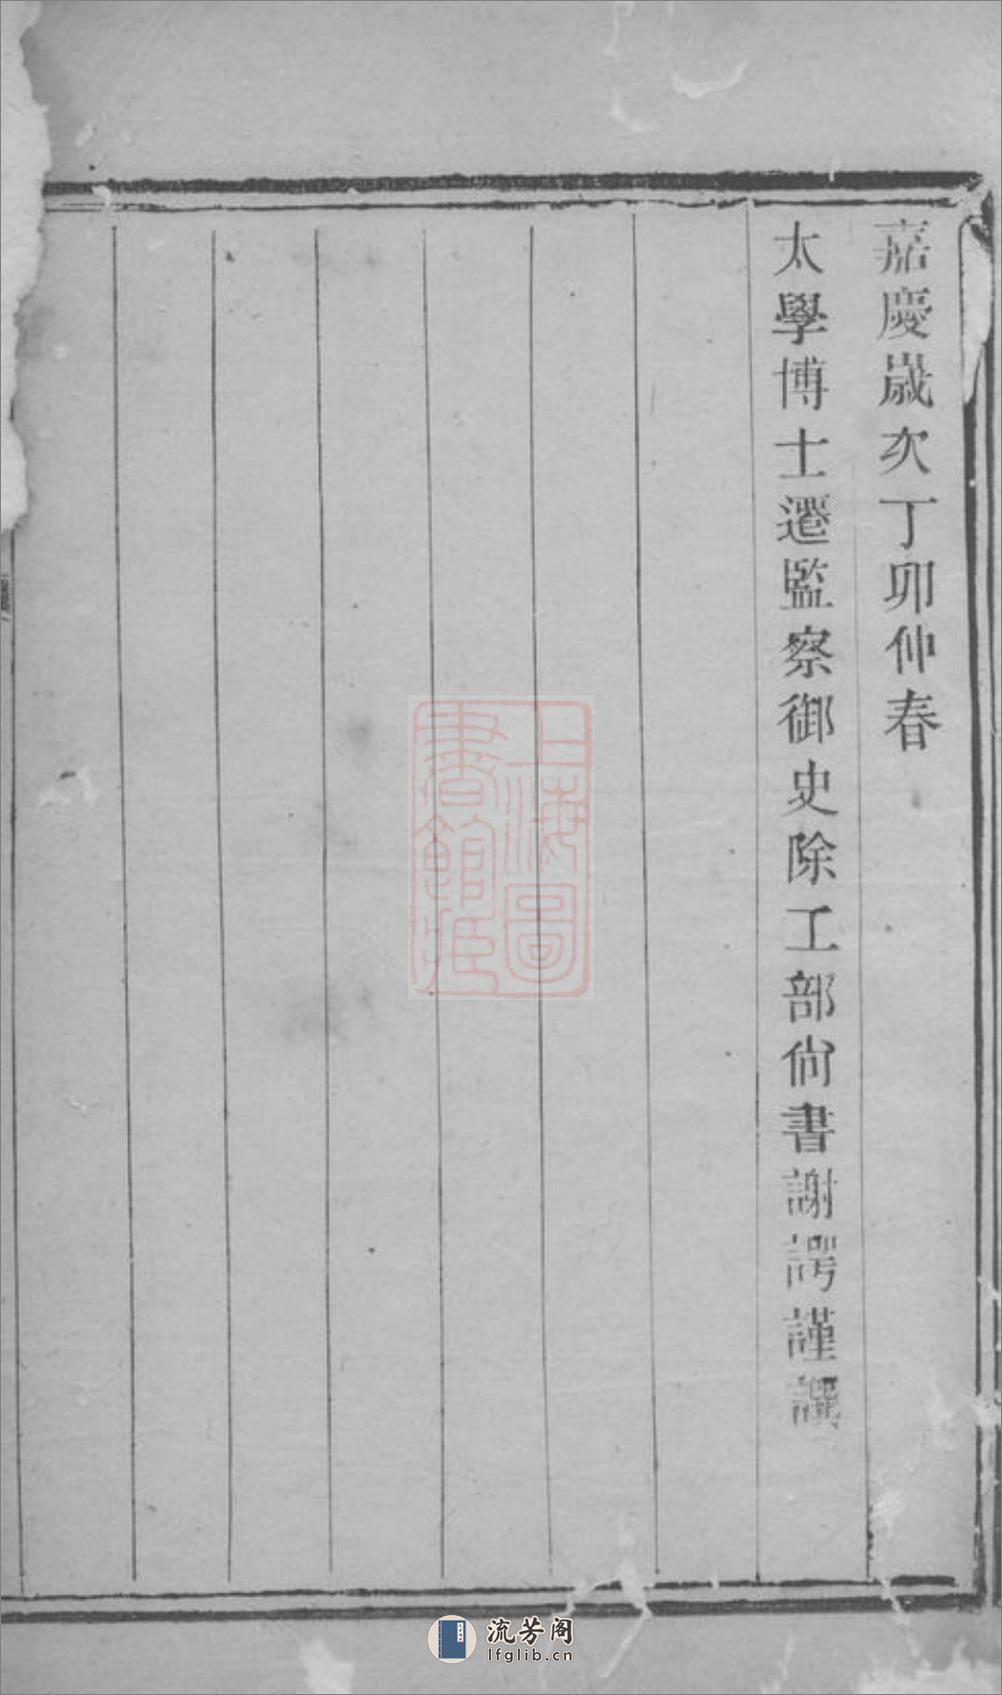 嘉慶歲次丁卯仲春
太學博士遷監察御史除工部尙書謝諤謹譔
上海圖
書館藏
流芳阁
lfglib.cn